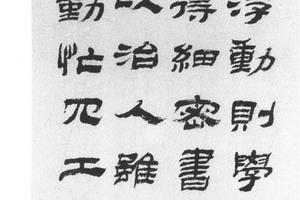 浮動則學
得細密書
以治人雖
動忙冗工